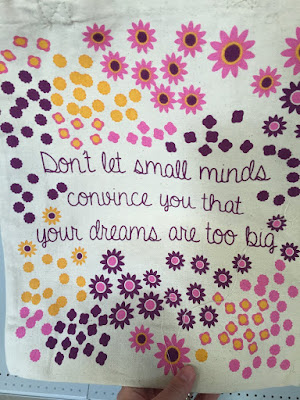 Don't let small minds
convince you that
your dreams are too big